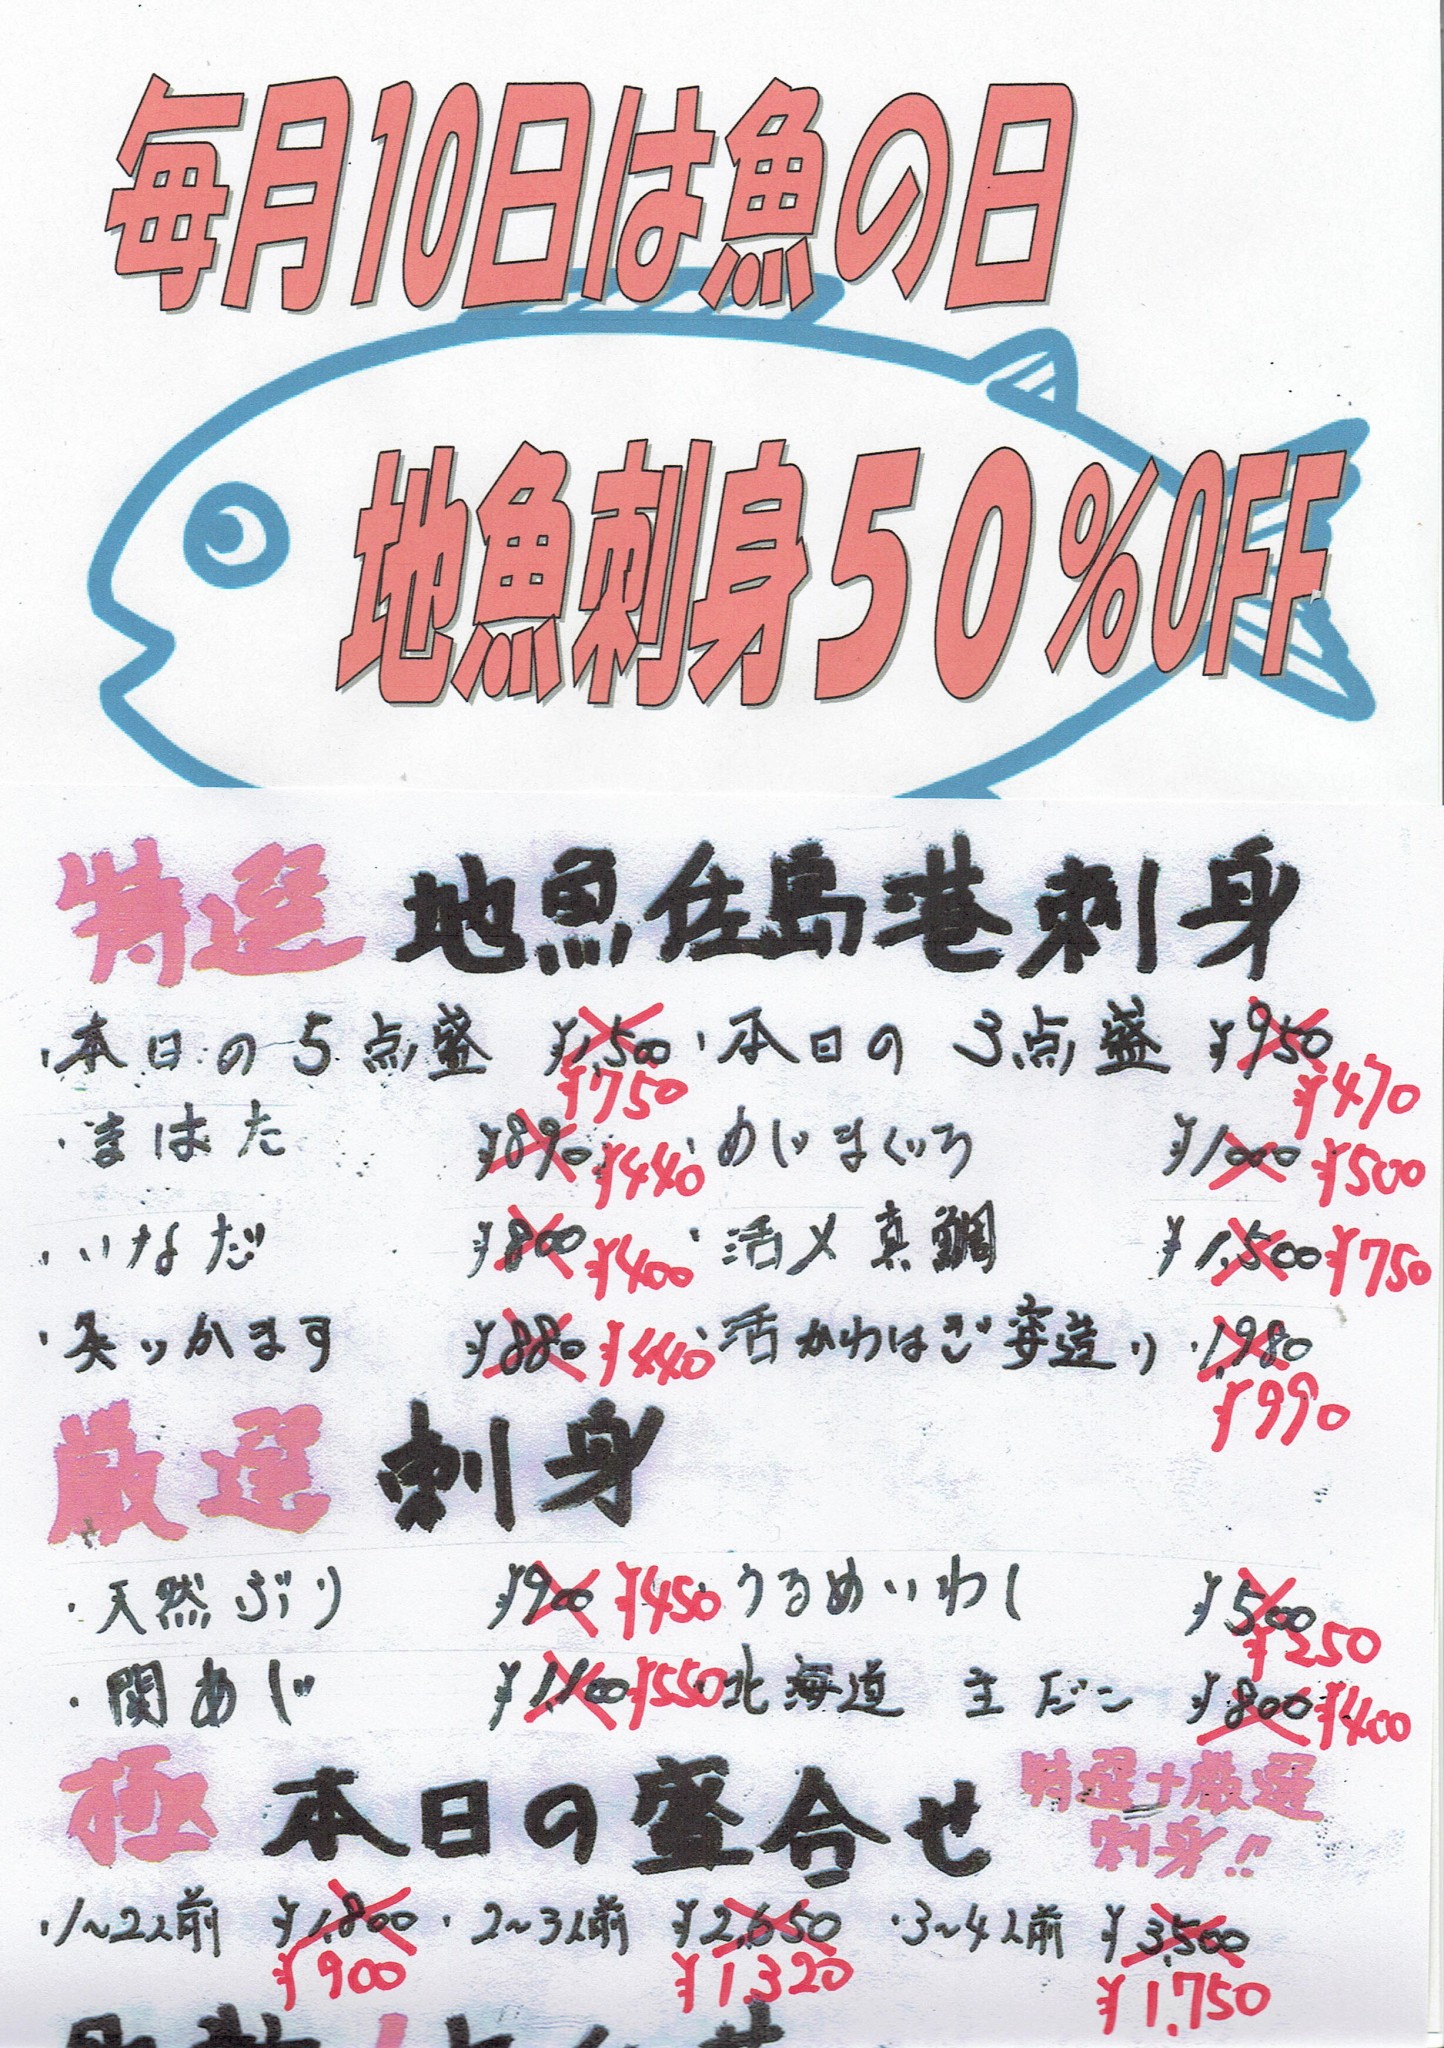 毎月10日は魚の日
地魚刺身50%OFF
特選 地魚佐島港刺身
・本日の5点盛 ¥1,500 ¥750 ・本日の3点盛 ¥950 ¥470
・まはた ¥890 ¥440 ・めじまぐろ ¥1000 ¥500
・いなだ ¥800 ¥400 ・活〆真鯛 ¥1,500 ¥750
・炙りかます ¥880 ¥440 ・活かわはぎ姿造り ・1,980 ¥990
厳選 刺身
・天然ぶり ¥900 ¥450 ・うるめいわし ¥500 ¥250
・関あじ ¥1,100 ¥550 ・北海道 主だこ ¥800 ¥400
極 本日の盛合せ 特選+厳選
刺身!!
・1~2人前 ¥1,800 ・2~3人前 ¥2,650 ・3~4人前 ¥3,500
¥900 ¥1,320 ¥1,750